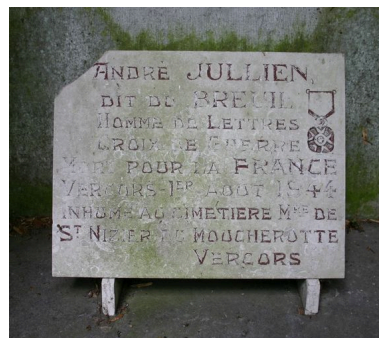 ANDRÉ JULLIEN
DIT DU BREUIL
HOMME DE LETTRES
CROIX DE GUERRE
MORT POUR LA FRANCE
VERCORS-1ER AOUT 1944
INHUMÉ AU CIMETIERE MRE DE
ST NIZIER DU MOUCHEROTTE
VERCORS